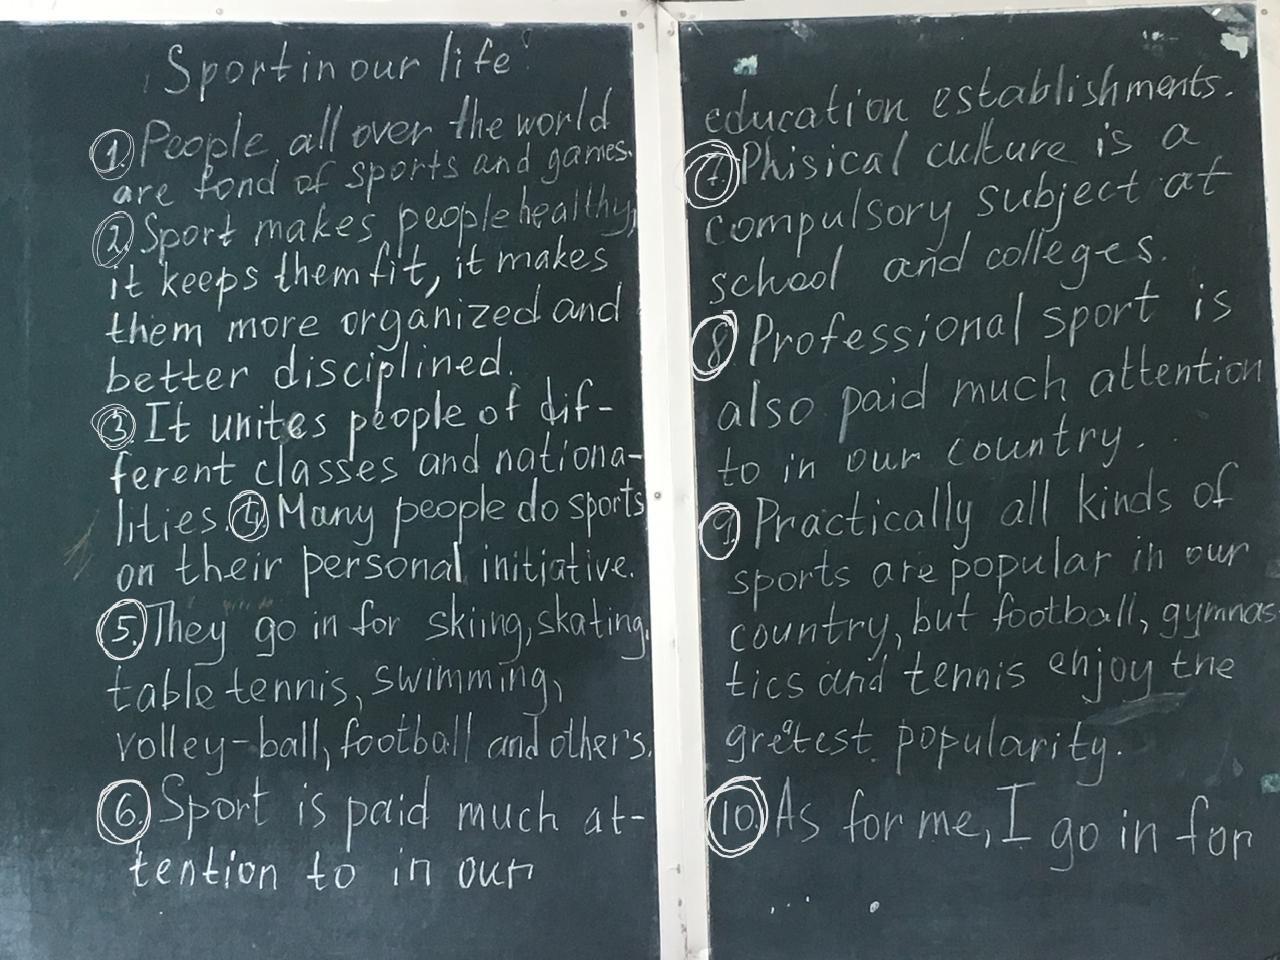 Sport in our life!
1. People all over the world
are fond of sports and games.
2. Sport makes people healthy,
it keeps them fit, it makes
them more organized and
better disciplined.
3. It unites people of dif-
ferent classes and nationa-
lities. 4. Many people do sports
on their personal initiative.
5. They go in for skiing, skating,
table tennis, swimming,
volley-ball, football and others.
6. Sport is paid much at-
tention to in our
education establishments.
7. Phisical culture is a
compulsory subject at
school and colleges.
8 Professional sport is
also paid much attention
to in our country.
9. Practically all kinds of
sports are popular in our
country, but football, gymnas
tics and tennis enjoy the
greatest popularity.
10. As for me, I go in for
....